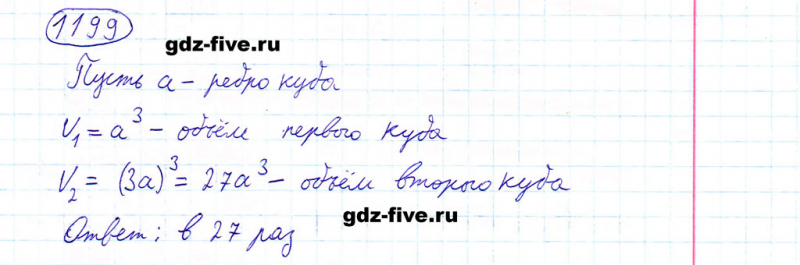 1199
gdz-five.ru
Пусть a - ребро куба
V₁ = a³ - объём первого куба
V₂ = (3a)³ = 27a³ - объём второго куба
gdz-five.ru
Ответ: в 27 раз